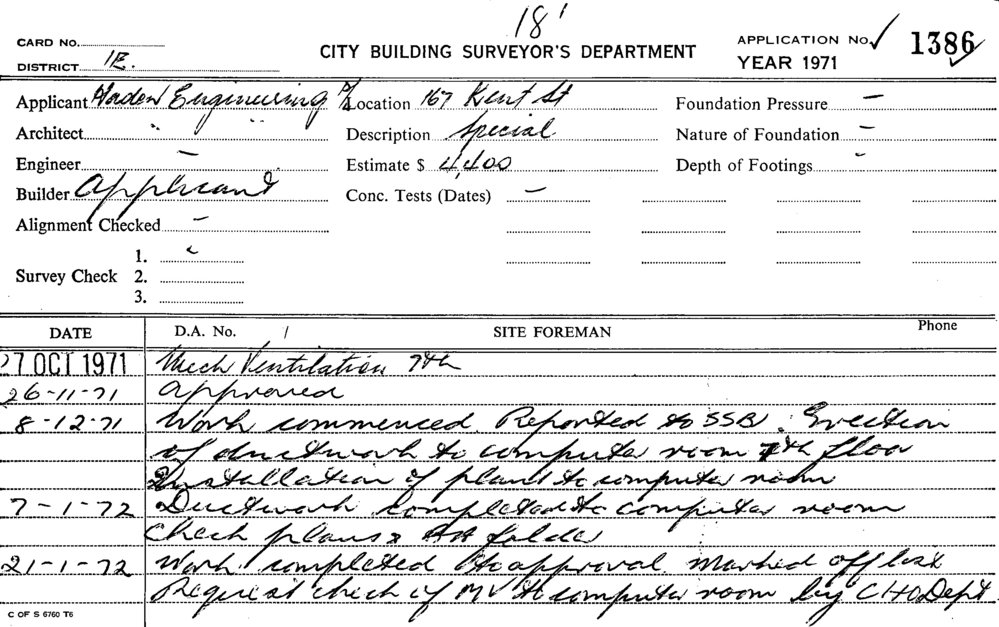 18'
CARD No.
CITY BUILDING SURVEYOR'S DEPARTMENT
APPLICATION No. ✓ 1386 ✓
DISTRICT 1E.
YEAR 1971
Applicant Engineering P/L
Location 167 Kent St
Foundation Pressure –
Architect " "
Description Special
Nature of Foundation –
Engineer –
Estimate $ 4,400
Depth of Footings -
Builder Applicant
Conc. Tests (Dates) –
Alignment Checked –
1.
Survey Check 2.
3.
DATE D.A. No. / SITE FOREMAN Phone
27 OCT 1971 Mech Ventilation 7th
26-11-71 Approved
8-12-71 Work commenced. Reported to SSB. Erection
of ductwork to computer room 7th floor
Installation of plant to computer room
7-1-72 Ductwork completed to computer room
Check plans folder
21-1-72 Work completed to approval marked off list
Request check of MV to computer room by CHO Dept
C OF S 6760 T6